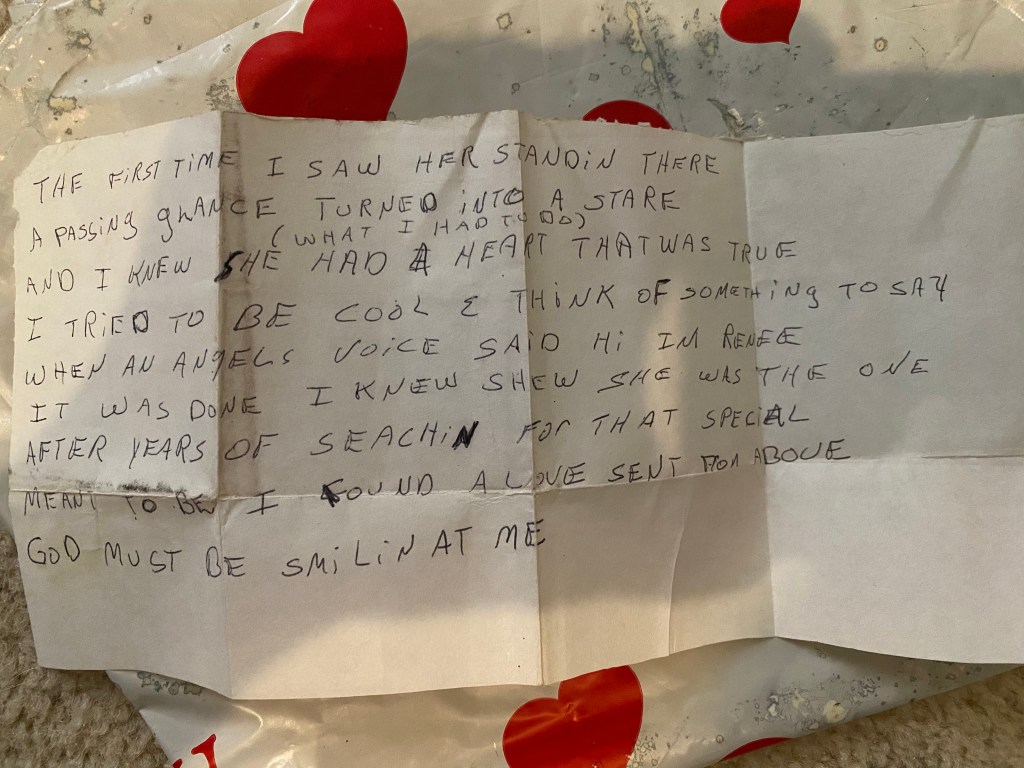 THE FIRST TIME I SAW HER STANDIN THERE
A PASSING gLANCE TURNED INTO A STARE
(WHAT I HAD TO DO)
AND I KNEW SHE HAD A HEART THAT WAS TRUE
I TRIED TO BE COOL & THINK OF SOMETHING TO SAY
WHEN AN ANGELS VOICE SAID HI IM RENEE
IT WAS DONE I KNEW SHEW SHE WAS THE ONE
AFTER YEARS OF SEACHIN FOR THAT SPECIAL
MEANT TO BE I FOUND A LOVE SENT FROM ABOVE
GOD MUST BE SMILIN AT ME